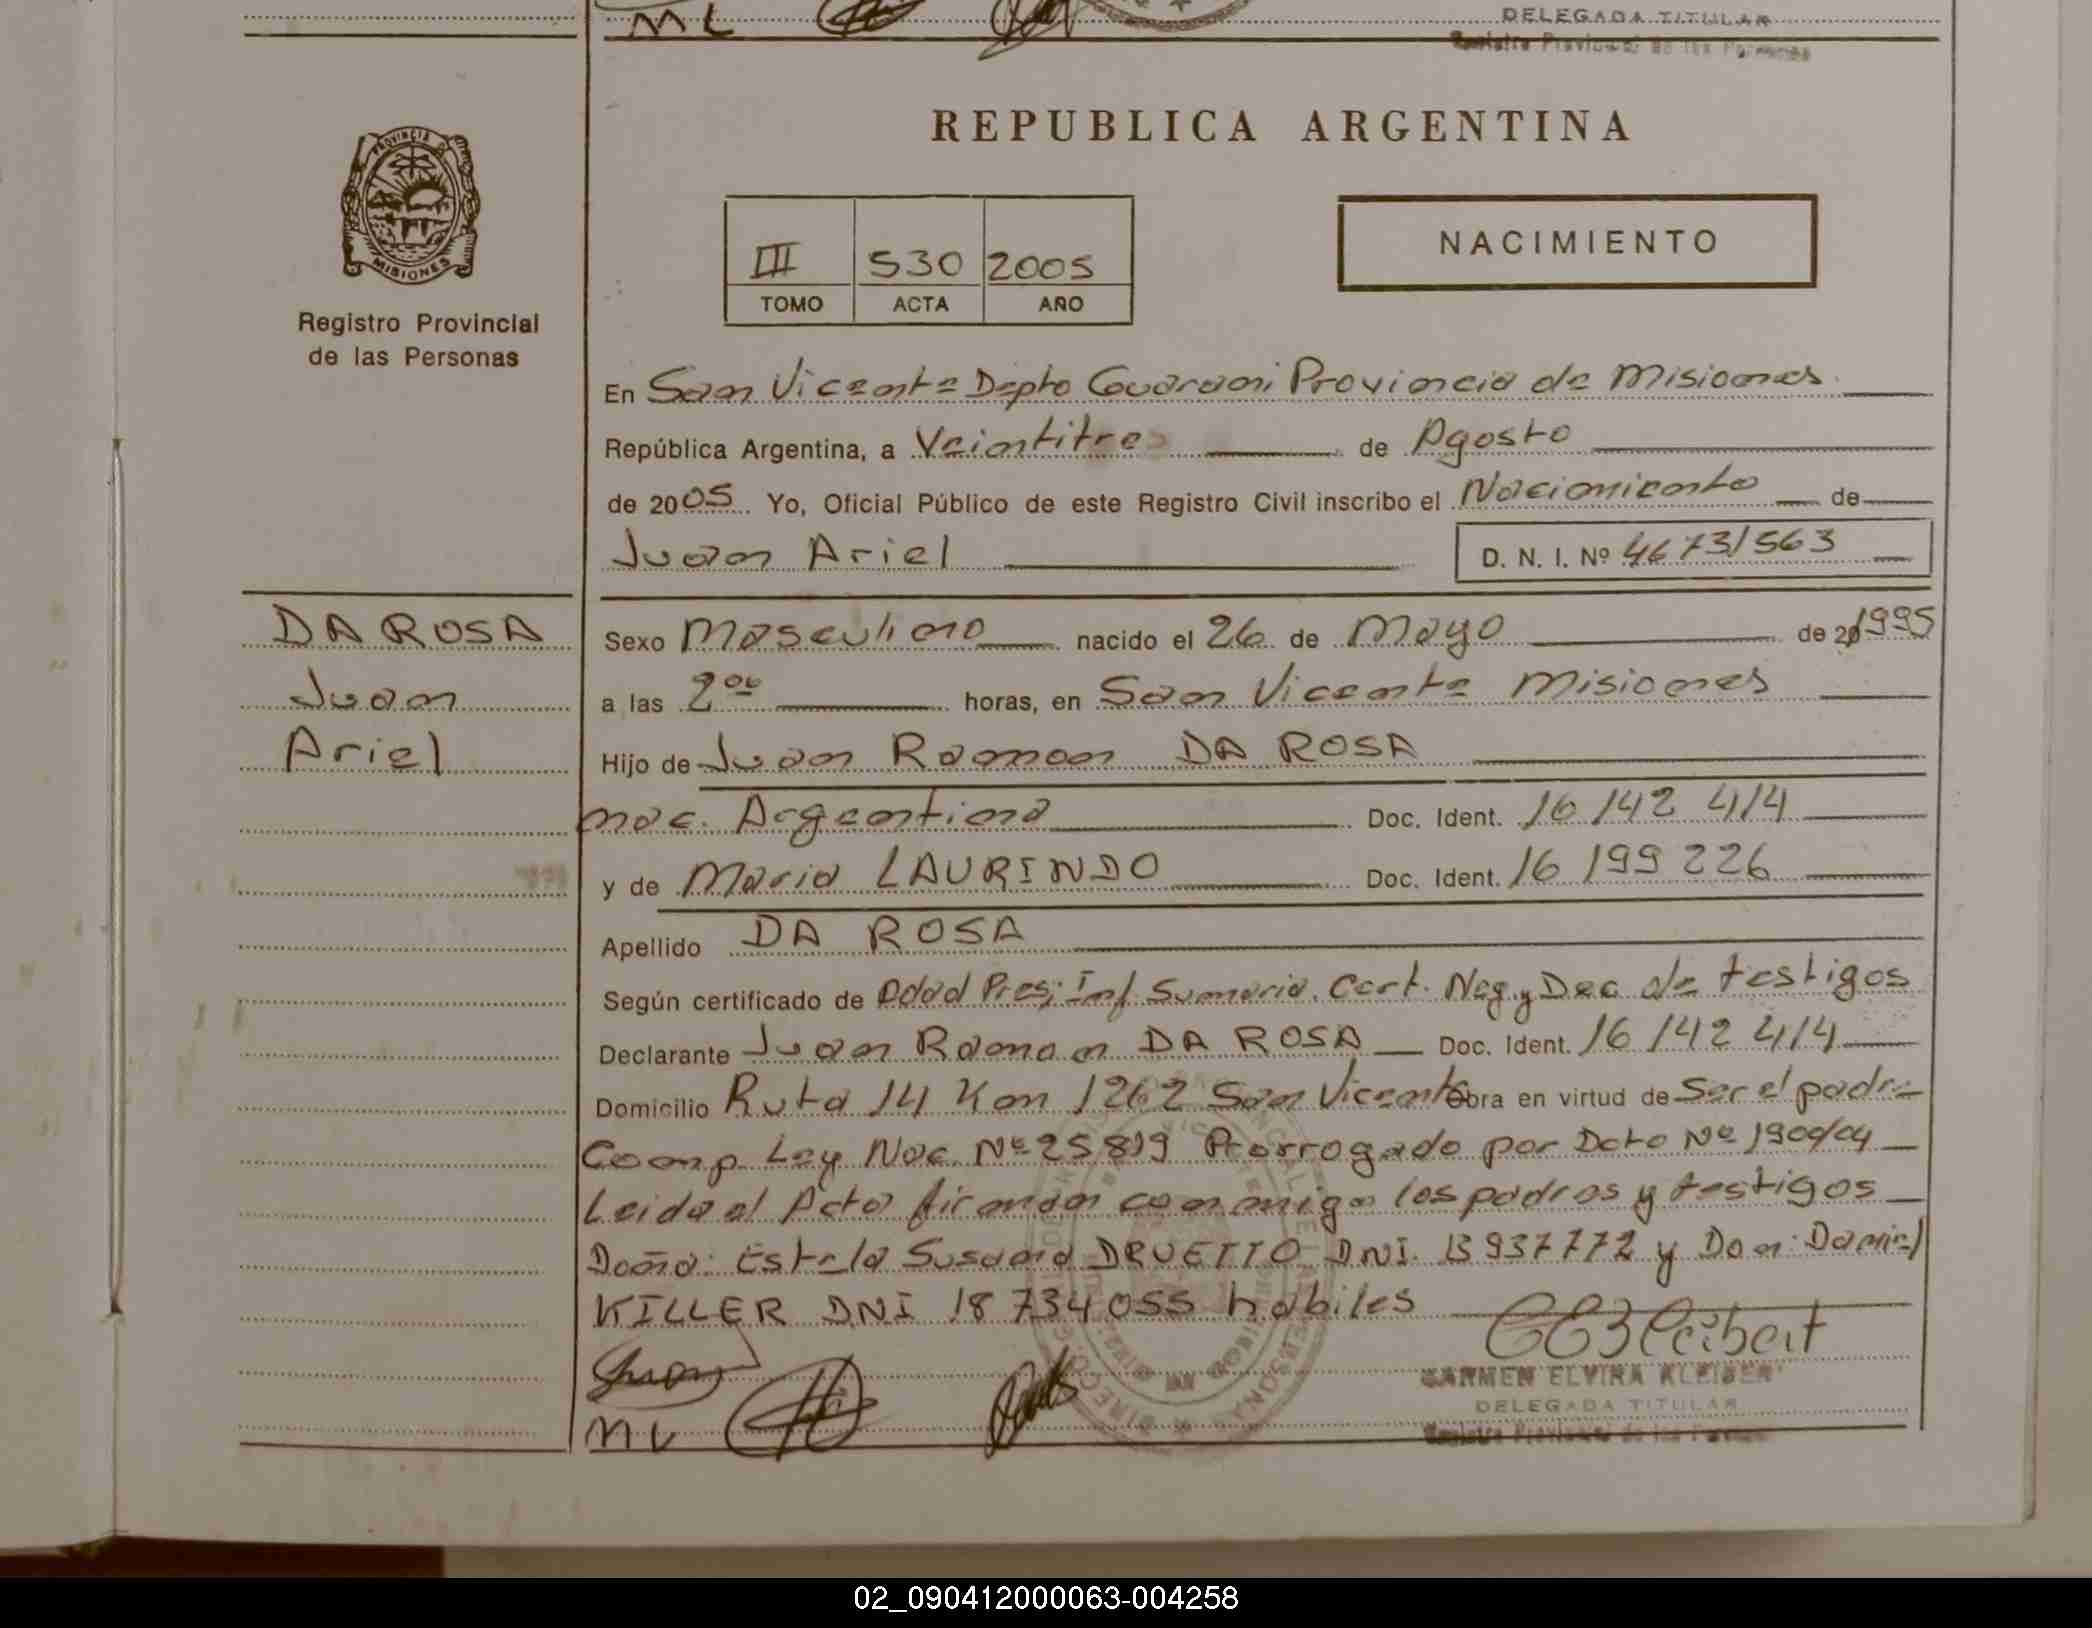 ML
DELEGADA TITULAR
Registro Provincial de las Personas
REPUBLICA ARGENTINA
PROVINCIA D
MISIONES
Registro Provincial
de las Personas
NACIMIENTO
III 530 2005
TOMO ACTA AÑO
En San Vicente Depto Guarani Provincia de Misiones
República Argentina, a Veintitres de Agosto
de 2005 Yo, Oficial Público de este Registro Civil inscribo el Nacimiento de
Juan Ariel D. N. I. Nº 46731563
DA ROSA
Juan
Ariel
Sexo Masculino nacido el 26 de Mayo de 20 1995
a las 2 00 horas, en San Vicente Misiones
Hijo de Juan Ramon DA ROSA
nac. Argentina Doc. Ident. 16 142 414
y de Maria LAURINDO Doc. Ident. 16 199 226
Apellido DA ROSA
Según certificado de Edad Pres; Inf Sumaria. Cert. Neg y Dec de testigos
Declarante Juan Ramon DA ROSA Doc. Ident. 16 142 414
Domicilio Ruta 14 Km 1262 San Vicente Obra en virtud de Ser el padre
Comp Ley Nac. Nº 25 819 Prorrogado por Dcto Nº 1900/04
Leida el Acta firman conmigo los padres y testigos
Doña: Estela Susana DRUETTO DNI. 13 937772 y Don: Daniel
KILLER DNI 18 734 055 habiles
Juan
CARMEN ELVIRA KLEIBER
DELEGADA TITULAR
ML
Registro Provincial de las Personas
02_090412000063-004258